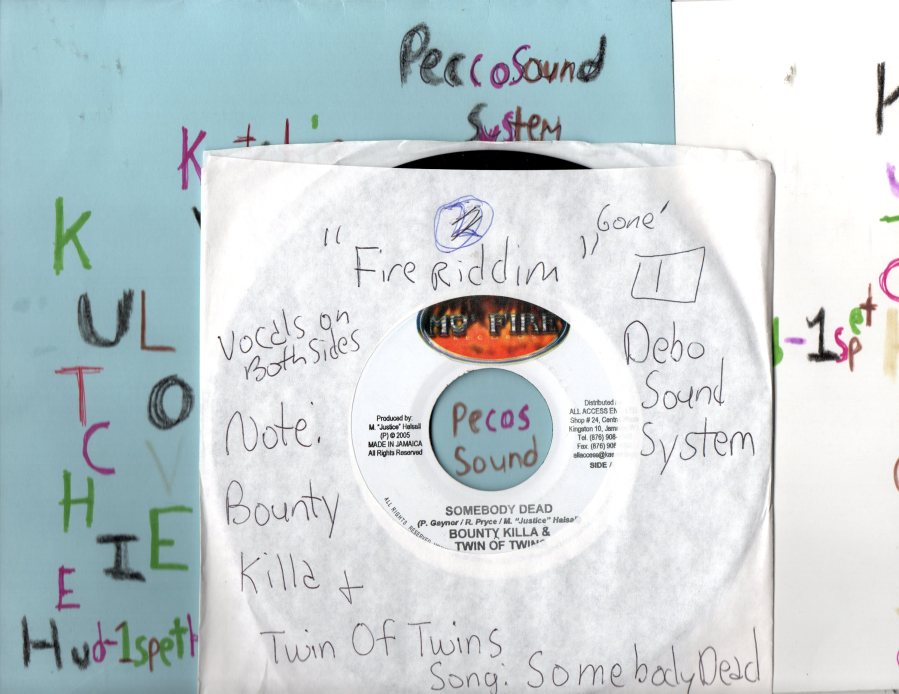 PeccoSound
System
K
U L
T O
C V
H I E
E
Hud-1speth
"Fire Riddim" Gone'
1
Vocals on
Both Sides
Note:
Bounty
Killa +
Twin Of Twins
Song: Somebody Dead
Debo
Sound
System
MO FIRE
Produced by:
M. "Justice" Halsall
(P) © 2005
MADE IN JAMAICA
All Rights Reserved
Pecos
Sound
Distributed
ALL ACCESS EN
Shop # 24, Centr
Kingston 10, Jama
Tel. (876) 908-
Fax (876) 908
allaccess@kas
SIDE /
ALL RIGHTS RESERVED
SOMEBODY DEAD
(P. Gaynor / R. Pryce / M. "Justice" Halsal
BOUNTY KILLA &
TWIN OF TWINS
-1spet